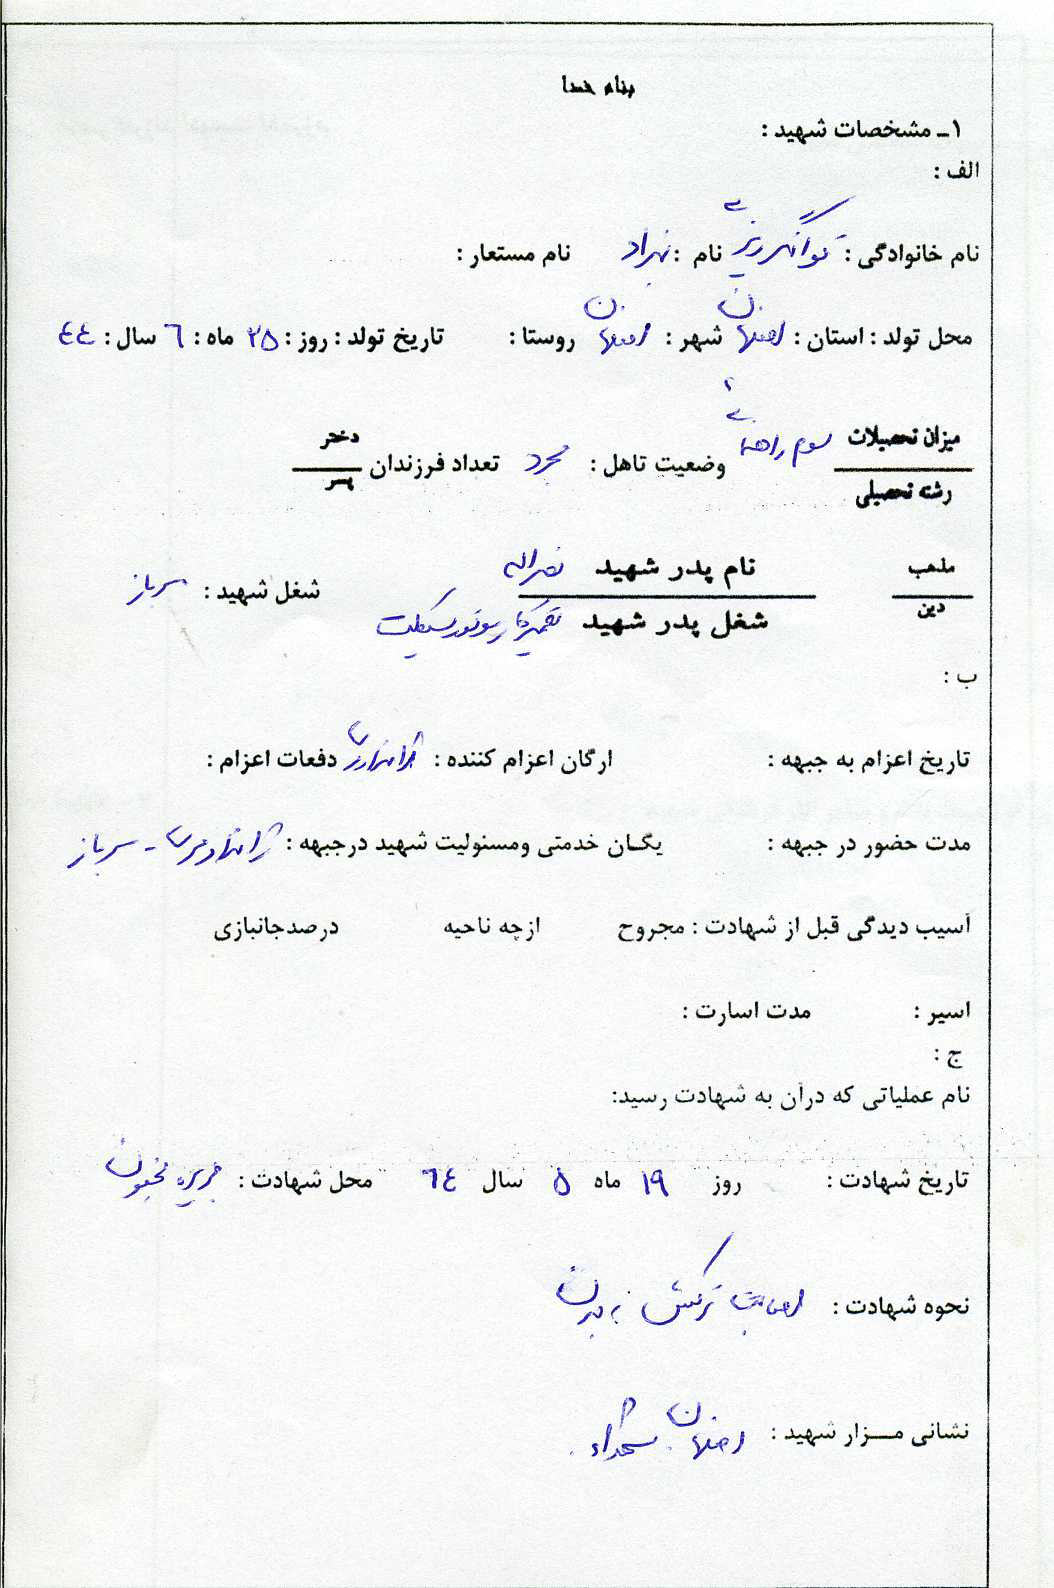 بنام خدا
۱ـ مشخصات شهید :
الف :
نام خانوادگی : نام : نام مستعار :
محل تولد : استان : اصفهان شهر : اصفهان روستا : تاریخ تولد : روز : ۲۵ ماه : ٦ سال : ٤٤
میزان تحصیلات سوم راهنمایی
رشته تحصیلی
وضعیت تاهل : مجرد تعداد فرزندان دختر
پسر
مذهب
دین
نام پدر شهید نصراله
شغل پدر شهید تعمیرکار موتورسیکلت
شغل شهید : سرباز
ب :
تاریخ اعزام به جبهه : ارگان اعزام کننده : ژاندارمری دفعات اعزام :
مدت حضور در جبهه : یگان خدمتی ومسئولیت شهید درجبهه : ژاندارمری - سرباز
آسیب دیدگی قبل از شهادت : مجروح ازچه ناحیه درصدجانبازی
اسیر : مدت اسارت :
ج :
نام عملیاتی که درآن به شهادت رسید:
تاریخ شهادت : روز ۱۹ ماه ۵ سال ٦٤ محل شهادت : جزیره مجنون
نحوه شهادت : اصابت ترکش به بدن
نشانی مـــزار شهید : اصفهان گلستان شهداء